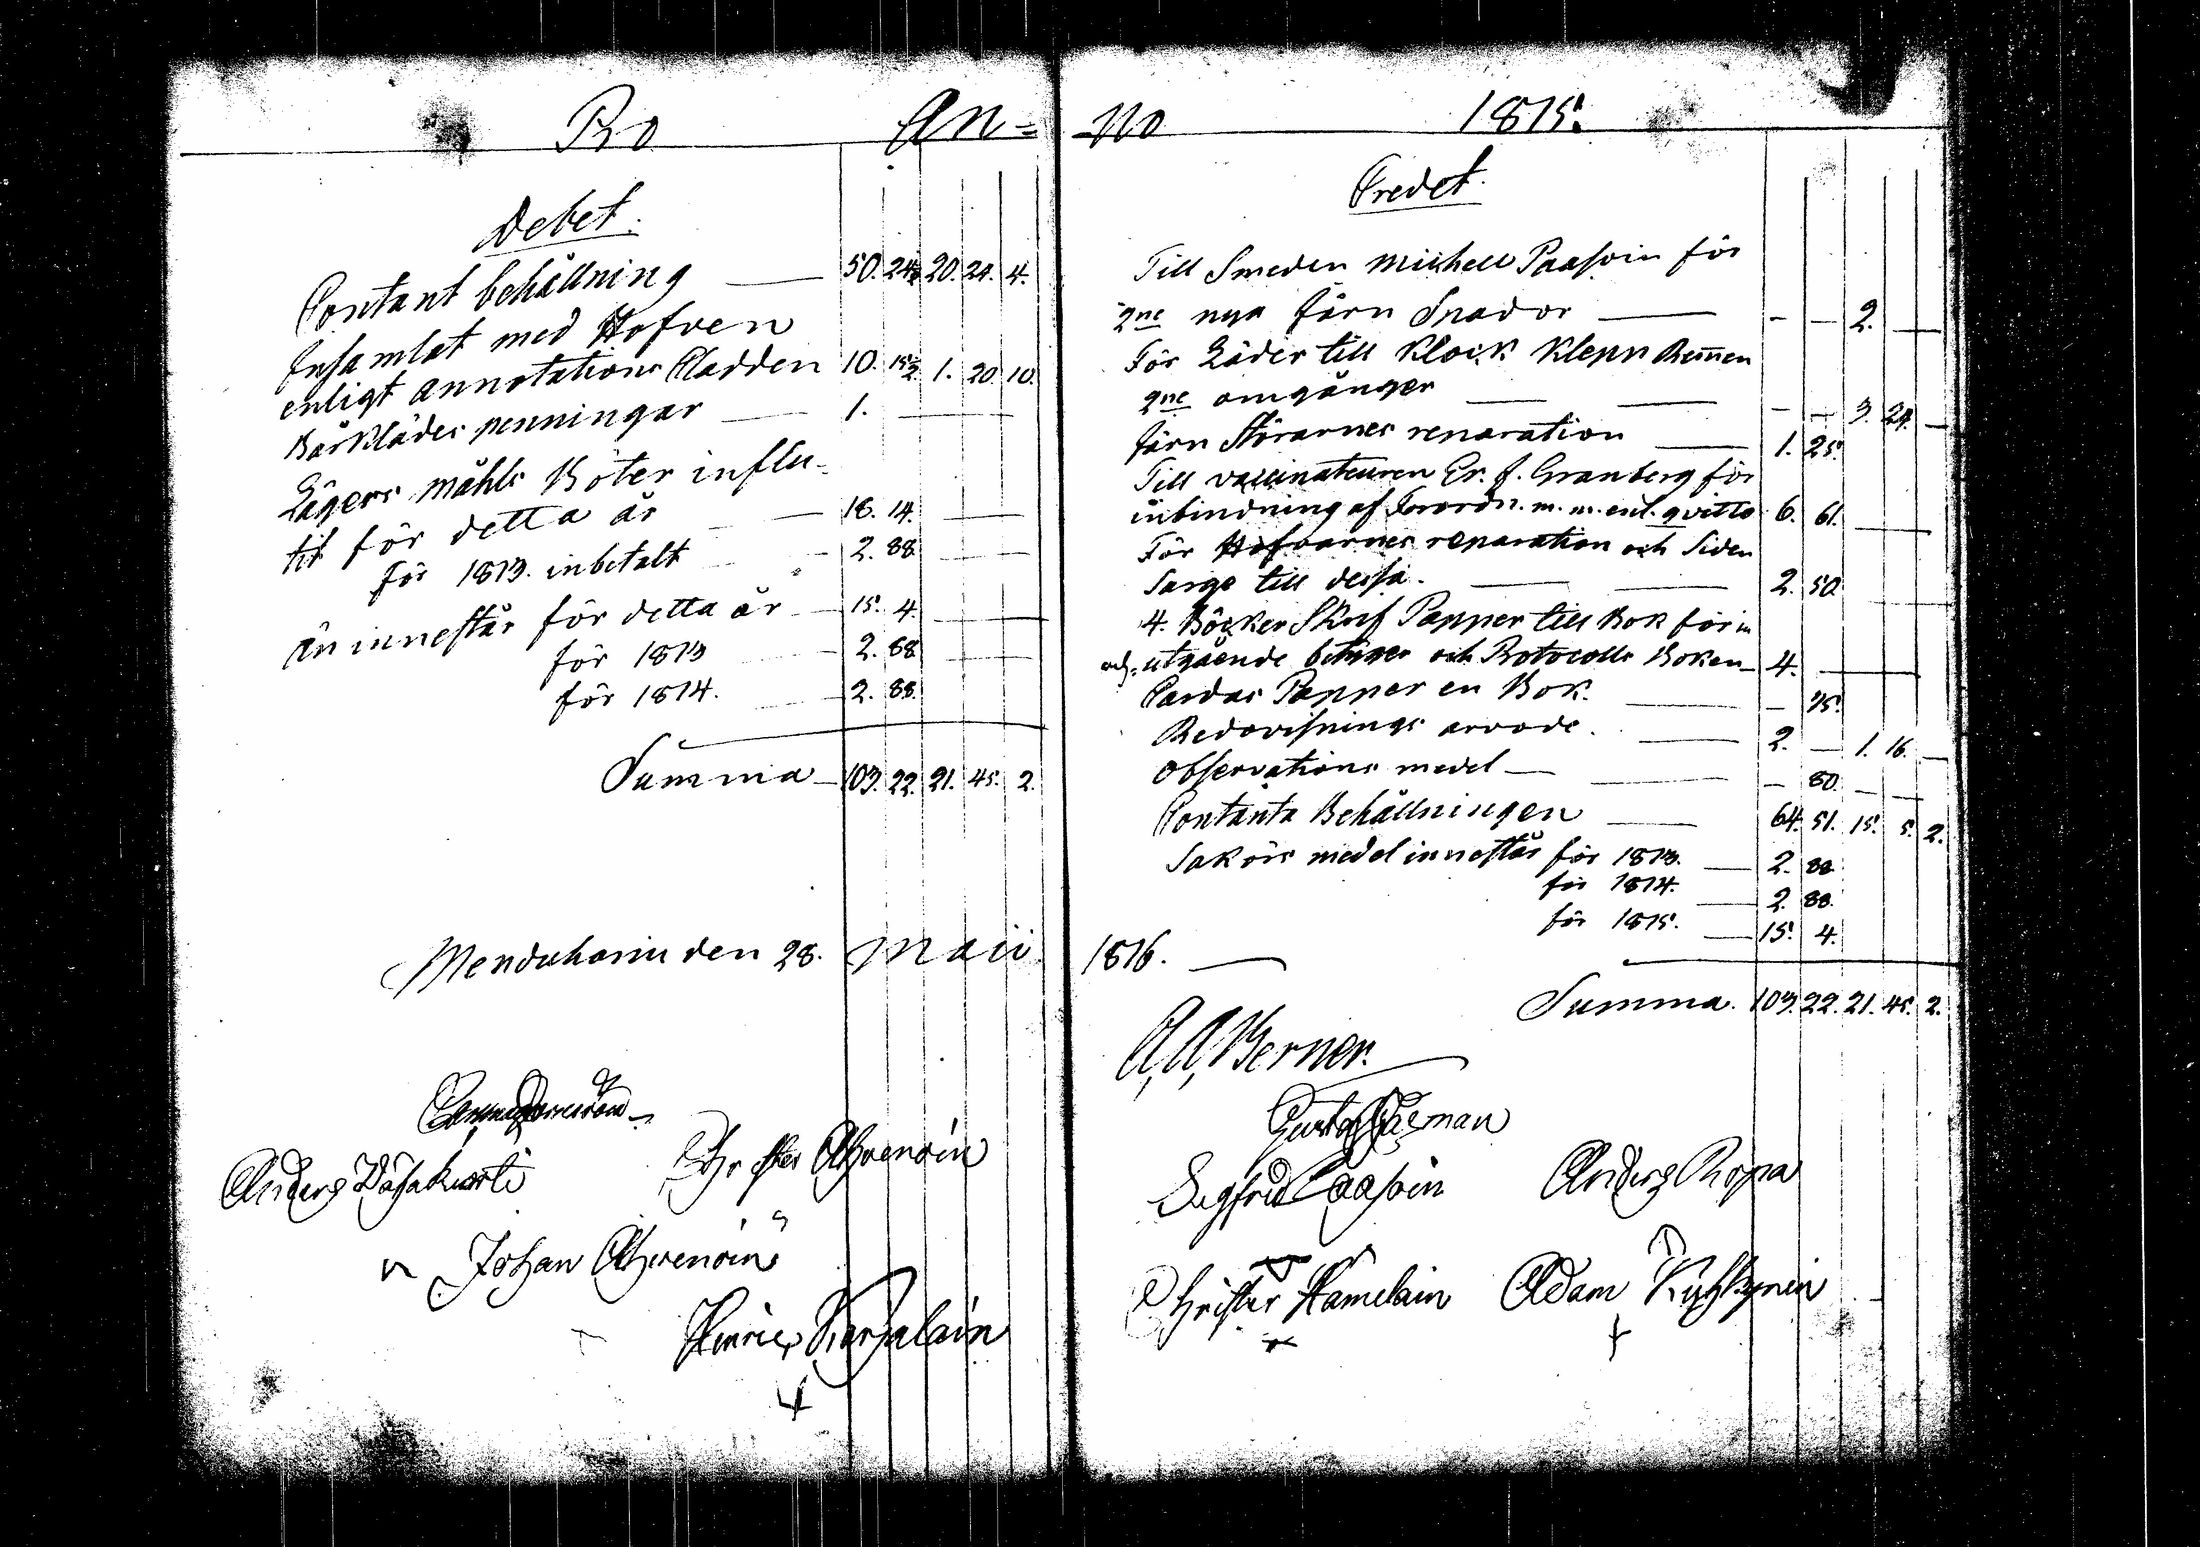 Pro An-
Debet.
Contant behållning 50. 24½ 20. 24. 4.
Insamlat med Hofven
enligt annotations Cladden 10. 15½ 1. 20. 10.
Bårklädes penningar 1.
Lägers måhls Böter influ-
tit för detta år 18. 14.
för 1813. inbetalt 2. 88.
än innestår för detta år 15. 4.
för 1813 2. 88
för 1814. 2. 88.
Summa 103. 22. 21. 45. 2.
Menduharju den 28. Maii
Anders
Christer Ahvenoin
Johan Ahvenoin
Hinric Karjalain
no 1815.
Credet.
Till Smeden Michell Paasoin för
2ne nya Järn Spador 2.
För Läder till Klock Klepp Remmen
2ne omgånger 3. 24.
Järn Störarnes reparation 1. 25.
Till vaccinateuren Er. J. Granberg för
inbindning af Förordn. m. m. enl. qvitto 6. 61.
För Hofvarnes reparation och Siden
Sarge till dessa. 2. 50.
4. Böcker Skrif Papper till Bok för in
och utgående betyger och Protocolls Boken 4.
Cardus Papper en Bok. 75.
Redovisnings arvode. 2. 1. 16.
Observations medel 80.
Contanta Behållningen 64. 51. 15. 5. 2.
Saköris medel innestår för 1813. 2. 88.
för 1814. 2. 88.
för 1815. 15. 4.
1816.
Summa. 103. 22. 21. 45. 2.
A. A. Berner.
Sigfrid Paasoin Anders Ropa
Christer Hamelain Adam